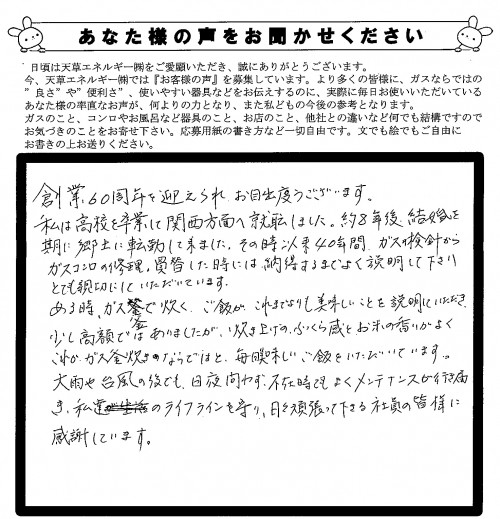 あなた様の声をお聞かせください
日頃は天草エネルギー㈱をご愛顧いただき、誠にありがとうございます。
今、天草エネルギー㈱では『お客様の声』を募集しています。より多くの皆様に、ガスならではの
”良さ”や”便利さ”、使いやすい器具などをお伝えするのに、実際に毎日お使いいただいている
あなた様の率直なお声が、何よりの力となり、また私どもの今後の参考となります。
ガスのこと、コンロやお風呂など器具のこと、お店のこと、他社との違いなど何でも結構ですので
お気づきのことをお寄せ下さい。応募用紙の書き方など一切自由です。文でも絵でもご自由に
お書きの上お送りください。
創業60周年を迎えられ、お目出度うございます。
私は高校を卒業して関西方面へ就職しました。約8年後、結婚を
期に郷土に転勤して来ました。その時以来40年間、ガスの検針から
ガスコンロの修理、買替した時には、納得するまでよく説明して下さり
とても親切にしていただいています。
ある時、ガス釜で炊く、ご飯が、これまでよりも美味しいことを説明していただき、
少し高額ではありましたが、炊き上りの、ふっくら感とお米の香りがよく
これが、ガス釜炊きのならではと、毎晩美味しいご飯をいただいています。
大雨や台風の後でも、日夜問わず、不在時でも、よくメンテナンスが行き届
き、私達のライフラインを守り、日々頑張って下さる社員の皆様に
感謝しています。